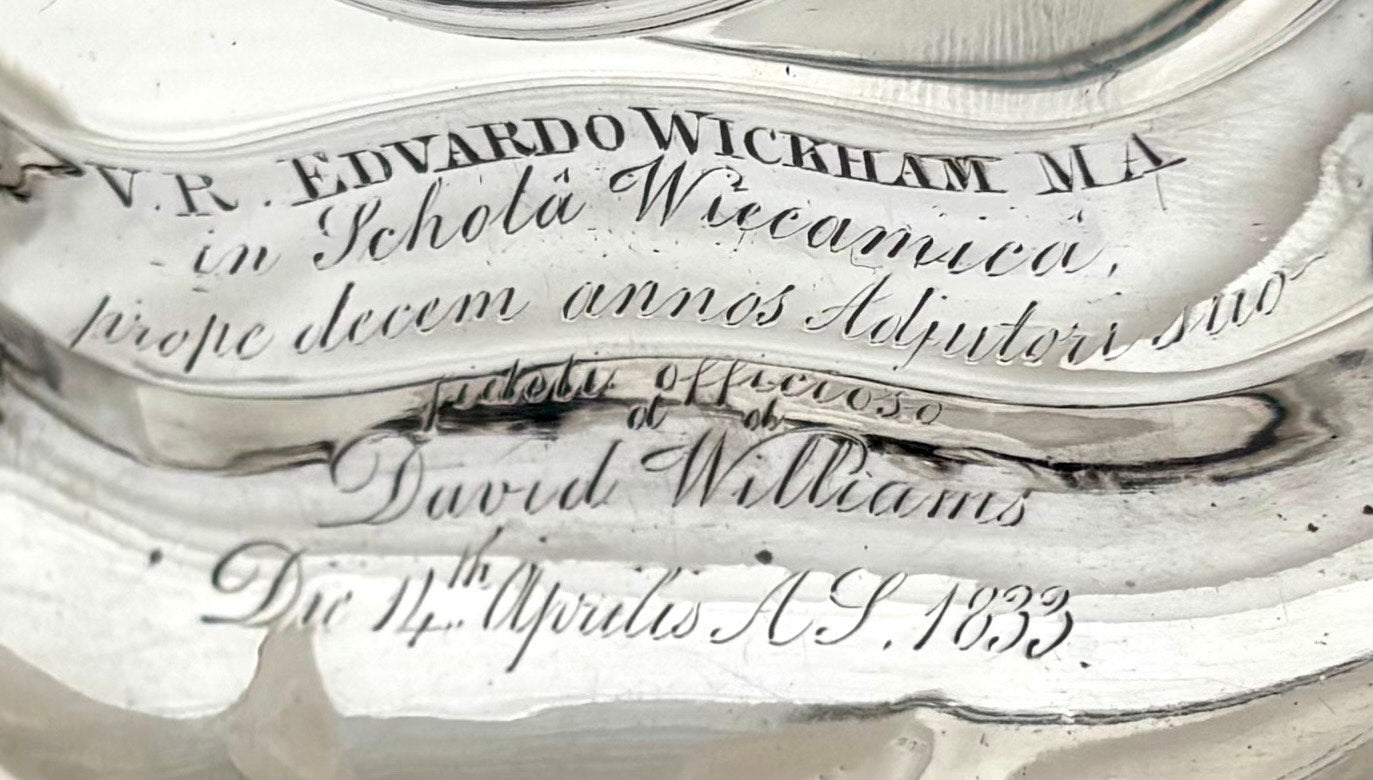 V. R. EDVARDO WICKHAM MA
in Scholâ Wiccamicâ,
prope decem annos Adjutori suo
fideli officioso
dt dt
David Williams
Die 14th Aprilis A S. 1833.